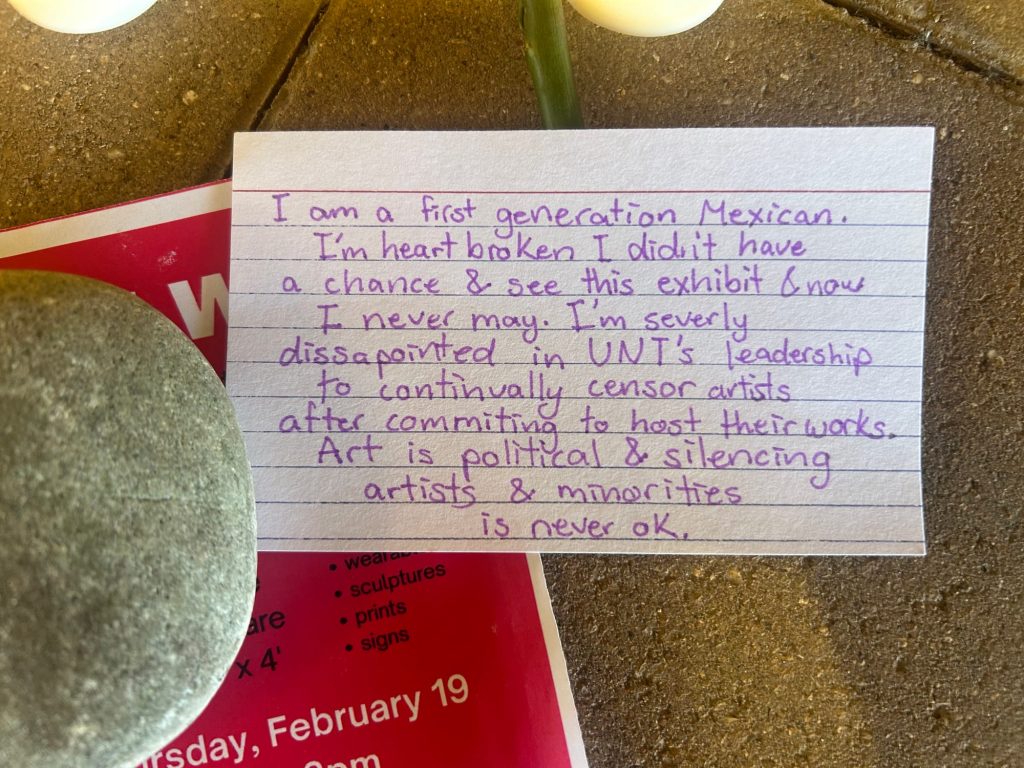 I am a first generation Mexican.
I'm heart broken I didn't have
a chance & see this exhibit & now
I never may. I'm severly
dissapointed in UNT's leadership
to continually censor artists
after commiting to host their works.
Art is political & silencing
artists & minorities
is never ok.
W
• weara
• sculptures
are • prints
x 4' • signs
rsday, February 19
pm